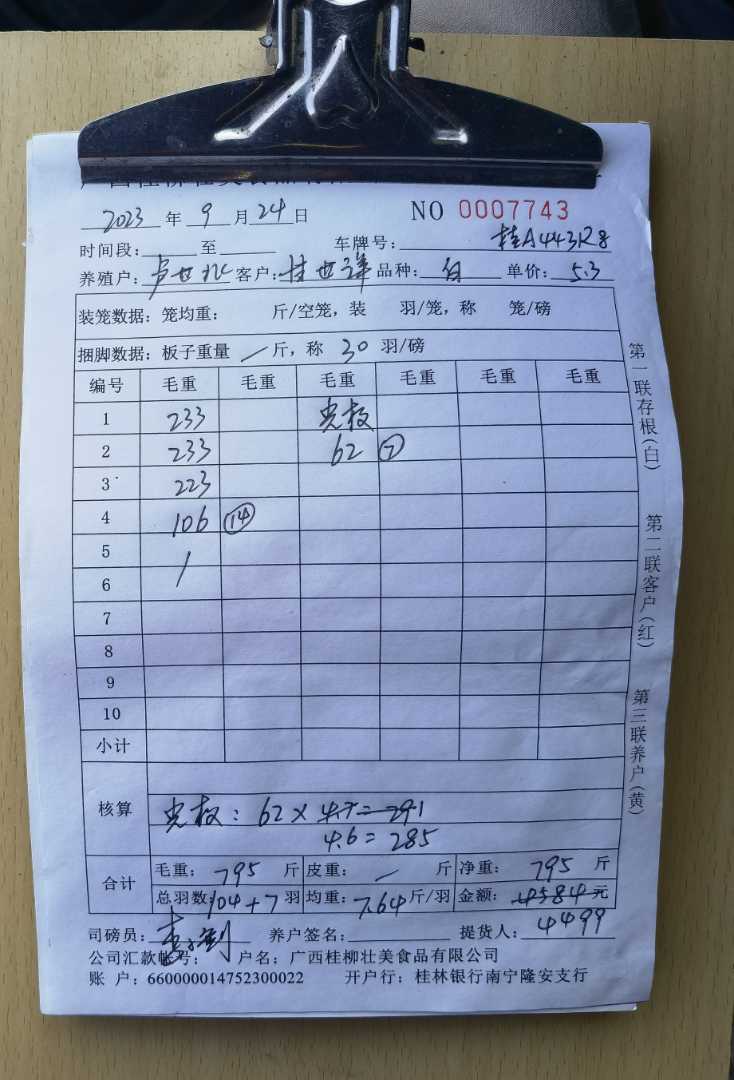 2023 年 9 月 24 日 NO 0007743
时间段: 至 车牌号: 桂A443R8
养殖户: 客户: 品种: 白 单价: 5.3
装笼数据: 笼均重: 斤/空笼, 装 羽/笼, 称 笼/磅
捆脚数据: 板子重量 / 斤, 称 30 羽/磅
编号 毛重 毛重 毛重 毛重 毛重 毛重
1 233 光板
2 233 62 ⑦
3 223
4 106 ⑭
5 /
6
7
8
9
10
小计
核算
光板: 62 × 4.7 = 291
4.6 = 285
合计 毛重: 795 斤 皮重: / 斤 净重: 795 斤
总羽数 104+7 羽 均重: 7.64 斤/羽 金额: 4584 元
4499
司磅员: 养户签名: 提货人:
公司汇款帐号: 户名: 广西桂柳壮美食品有限公司
账 户: 660000014752300022 开户行: 桂林银行南宁隆安支行
第一联存根(白) 第二联客户(红) 第三联养户(黄)